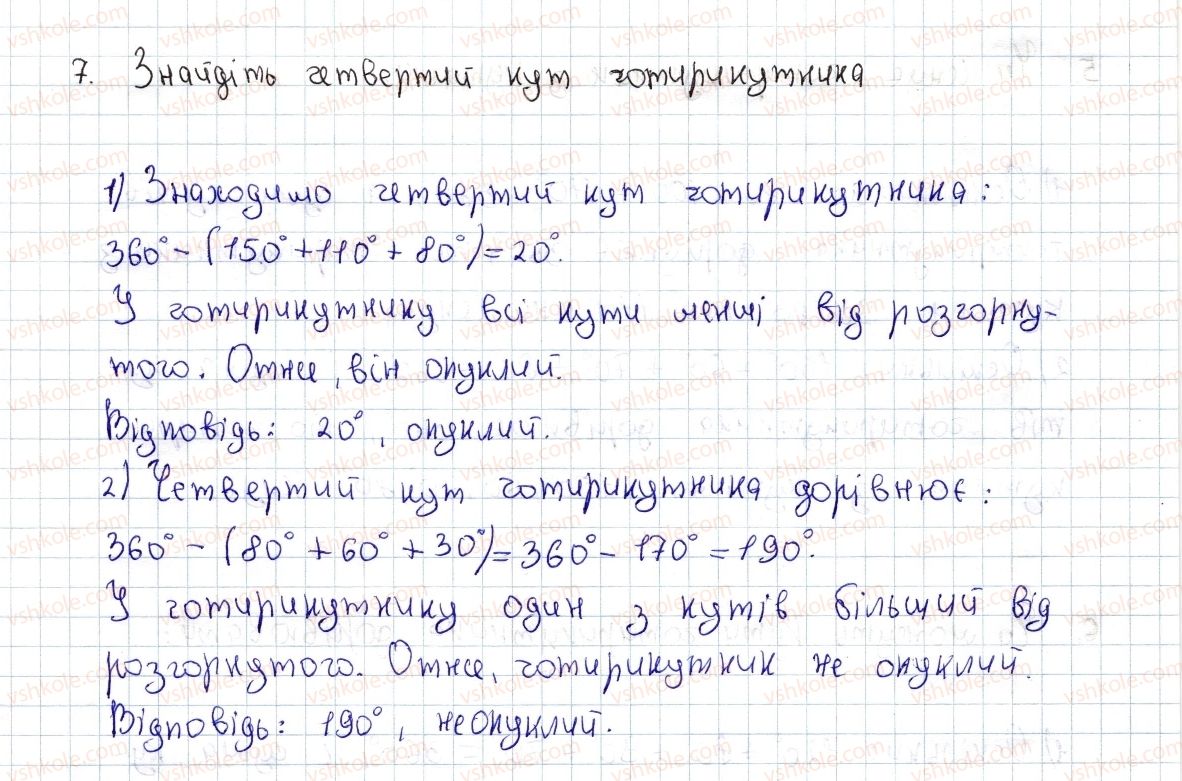 7. Знайдіть четвертий кут чотирикутника
1) Знаходимо четвертий кут чотирикутника:
360° - (150° + 110° + 80°) = 20°.
У чотирикутнику всі кути менші від розгорну-
того. Отже, він опуклий.
Відповідь: 20°, опуклий.
2) Четвертий кут чотирикутника дорівнює:
360° - (80° + 60° + 30°) = 360° - 170° = 190°.
У чотирикутнику один з кутів більший від
розгорнутого. Отже, чотирикутник не опуклий.
Відповідь: 190°, неопуклий.